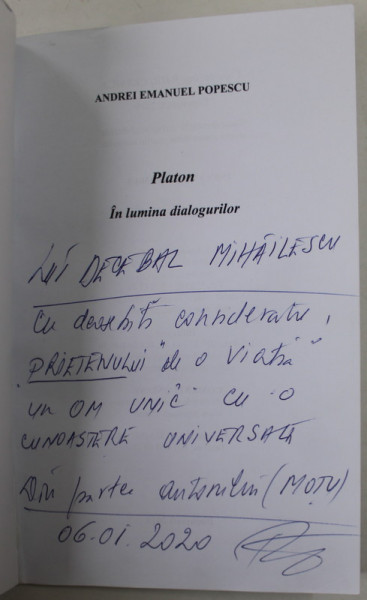 ANDREI EMANUEL POPESCU
Platon
În lumina dialogurilor
LUI DECEBAL MIHĂILESCU
Cu deosebită considerație,
"PRIETENULUI" de o viață"
un OM UNIC CU O
CUNOAȘTERE UNIVERSALĂ
Din partea autorului (MOȚU)
06.01.2020